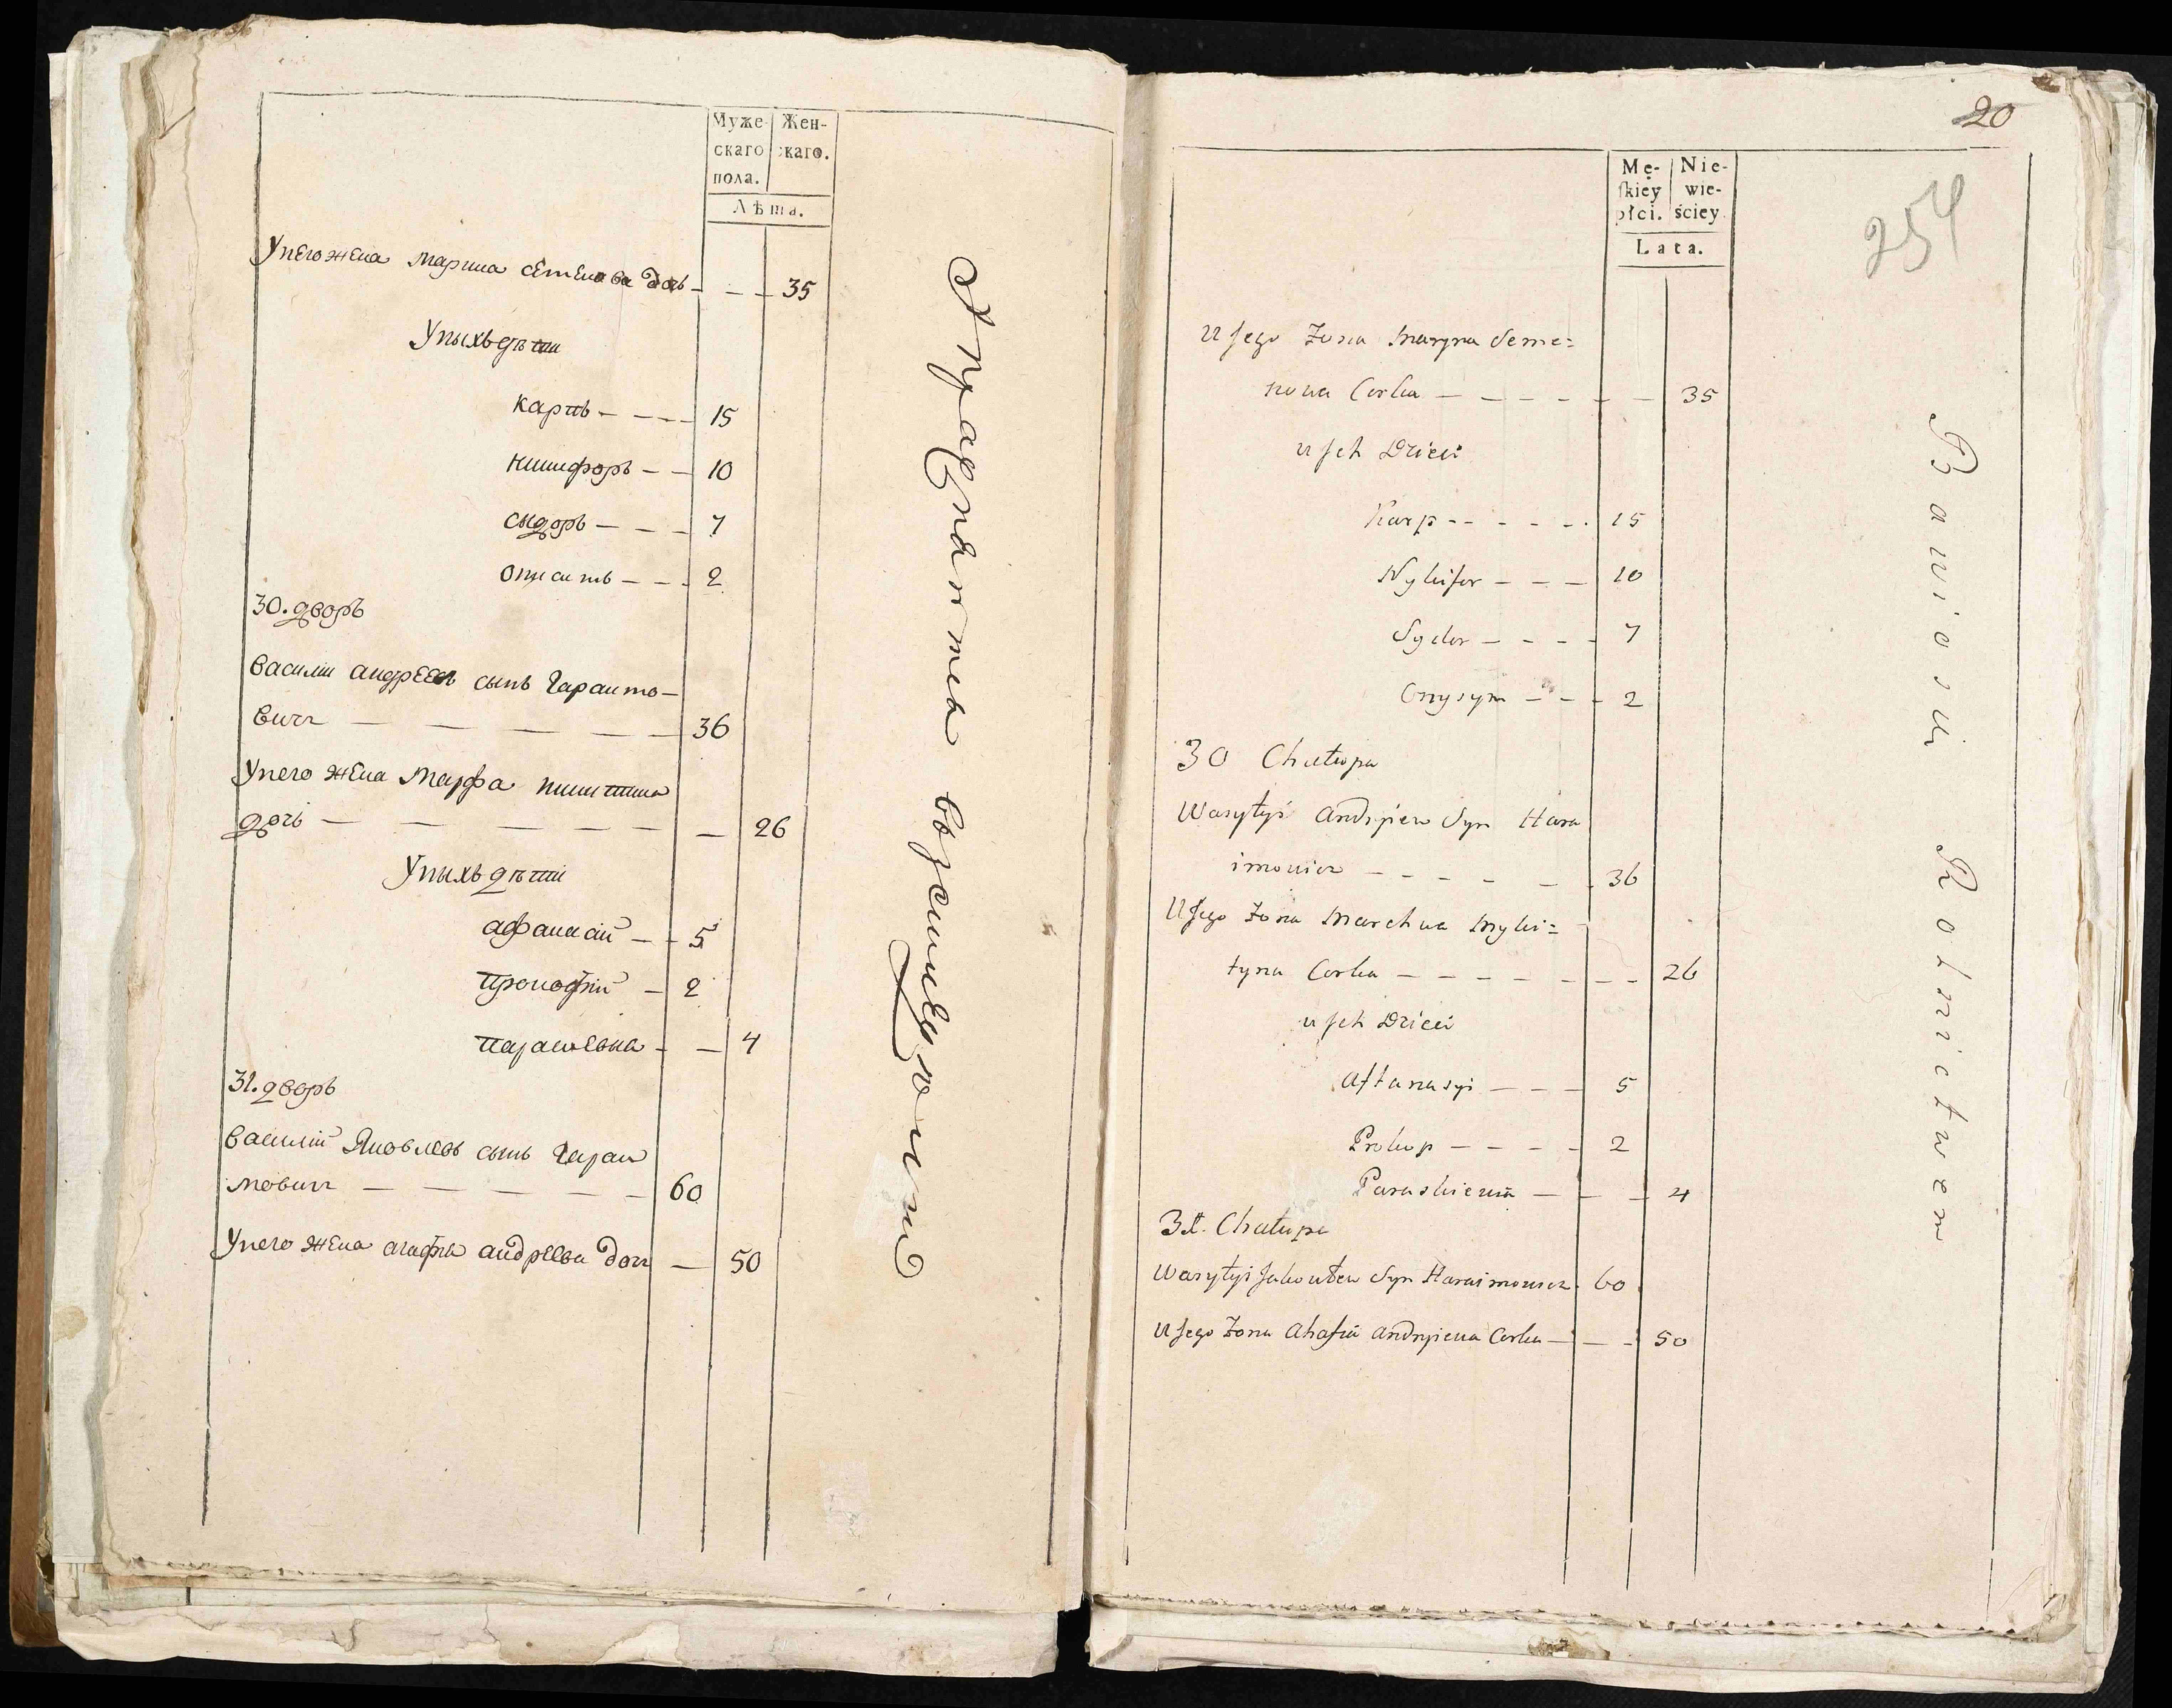 Муже-
скаго
пола.
Жен-
скаго.
Лѣта.
У него жена Марина Семенова дочь - - - 35
У ныхъ дѣти
Карпъ - - - - 15
Никифоръ - - 10
Сыдоръ - - - - 7
Онисимъ - - - 2
30. дворъ
Василии Андреевъ сынъ Гараимо-
вичъ - - - - - - 36
У него жена Марфа Никитина
дочь - - - - - - - 26
У ныхъ дѣти
Афанасий - - 5
Прокофий - 2
Парасковия - - 4
31. дворъ
Василий Яковлевъ сынъ Гараи
мовичъ - - - - - - 60
У него жена Агафия Андреева дочь - 50
упражняются
20
254
Mę-
skiey
płci.
Nie-
wie-
ściey
Lata.
U Jego Zona Maryna Seme=
nowa Corka - - - - - - - 35
u Jch Dzieci
Karp - - - - - - 15
Nykifor - - - 10
Sydor - - - - 7
Onysym - - - 2
30 Chałupa
Wasyłyi Andryiew Syn Hara
imowicz - - - - - - 36
U Jego Zona Marchwa Myki=
tyna Corka - - - - - - - - 26
u Jch Dzieci
Aftanasyi - - - 5
Prokop - - - - 2
Paraskiewia - - - 4
31. Chałupa
Wasyłyi Jakowłew Syn Haraimowicz - 60
U Jego Zona Ahafia Andryiewa Corka - - - 50
Bawio sie Rolnictwem